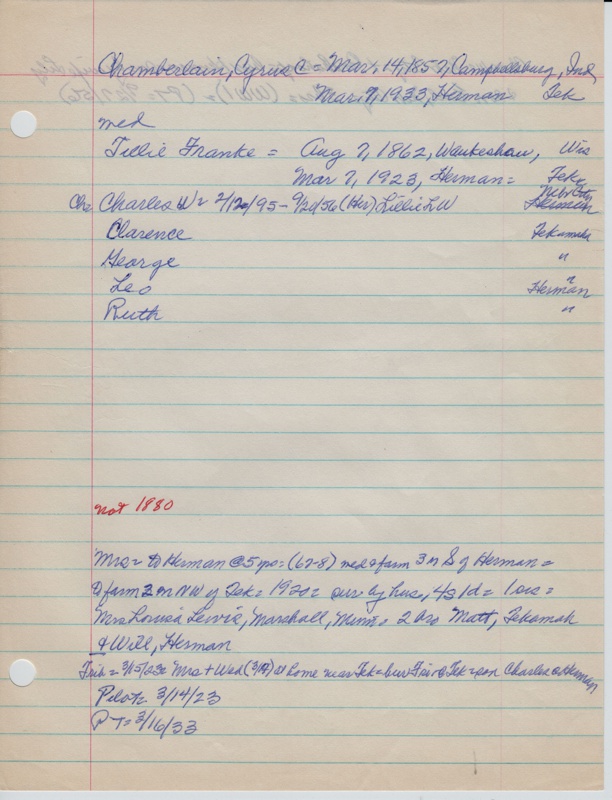 Chamberlain, Cyrus C = Mar. 14, 1857, Campbellsburg, Ind
Mar. 7, 1933, Herman Tek
med
Tillie Franke = Aug 7, 1862, Waukeshau, Wis
Mar 7, 1923, Herman = Tek
Nebr City
Ch= Charles W= 2/12/95 - 9/20/56 (Her) Lillie LW Herman
Clarence Tekamah
George "
Leo Herman
Ruth "
not 1880
Mrs = to Herman @ 5 yrs = (67-8) med & farm 3 m S of Herman =
to farm 2 m NW of Tek = 1920 = sur by hus, 4s 1d = 1 sis =
Mrs Louisa Lewis, Marshall, Minn = 2 bro Matt, Tekamah
& Will, Herman
Trib = 3/15/23 = Mrs + Wed (3/7) at home near Tek = bur @ Tek = son Charles @ Herman
Pilot = 3/14/23
PT = 3/16/33